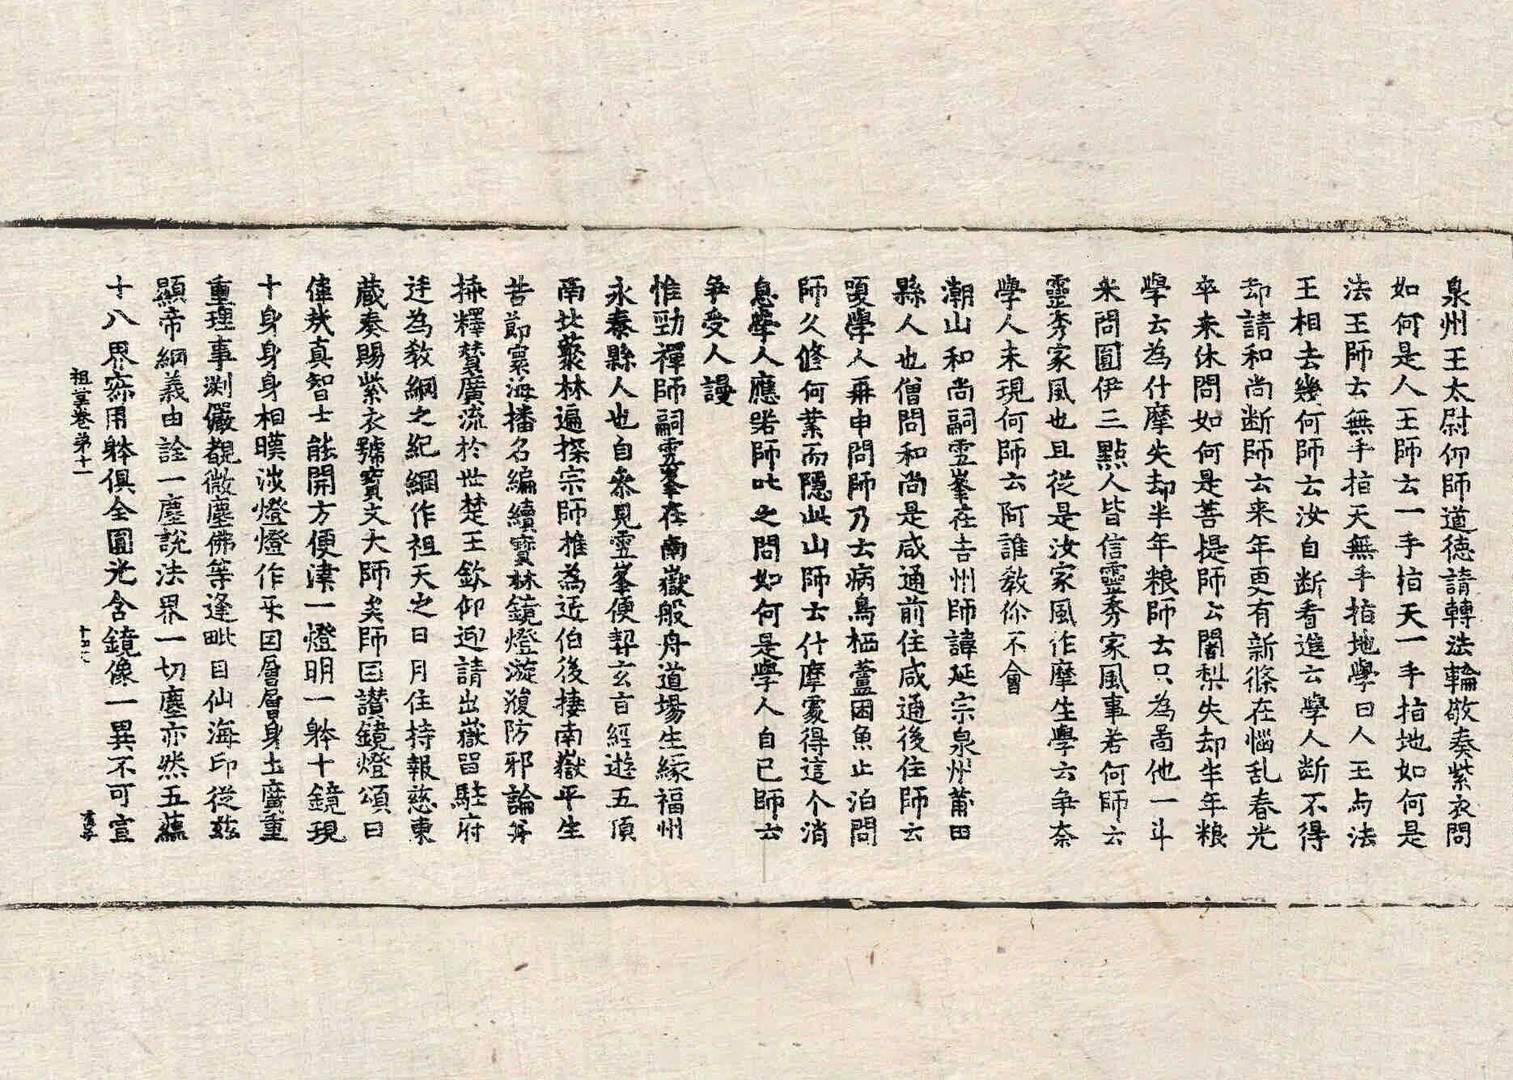 泉州王太尉仰師道德請轉法輪敬奏紫衣問
如何是人王師云一手指天一手指地如何是
法王師云無手指天無手指地學曰人王与法
王相去幾何師云汝自断看進云學人断不得
却請和尚断師云来年更有新條在惱乱春光
卒未休問如何是菩提師云闍梨失却半年粮
學云為什摩失却半年粮師云只為啚他一斗
米問圓伊三點人皆信靈秀家風事若何師云
靈秀家風也且從是汝家風作摩生學云争奈
學人未現何師云阿誰教你不會
潮山和尚嗣雪峯在吉州師諱延宗泉州莆田
縣人也僧問和尚是咸通前住咸通後住師云
嗄學人再申問師乃云病鳥栖蘆困魚止泊問
師久修何業而隱此山師云什摩處得這个消
息學人應喏師叱之問如何是學人自己師云
争受人謾
惟勁禪師嗣雪峯在南嶽般舟道場生緣福州
永泰縣人也自叅見雪峯便契玄旨經遊五頂
南北藂林遍探宗師推為近伯後捿南嶽平生
苦節寰海播名編續寶林鏡燈漩澓防邪論等
抹釋贊廣流於世楚王欽仰迎請出嶽留駐府
迋為教網之紀綱作祖天之日月住持報慈東
藏奏賜紫衣號寶文大師矣師因讃鏡燈頌曰
偉㢤真智士能開方便津一燈明一躰十鏡現
十身身身相瑛涉燈燈作互因層層身土廣重
重理事渕儼覩微塵佛等逢毗目仙海印從兹
顯帝網義由詮一塵說法界一切塵亦然五蘊
十八界寂用躰俱全圓光含鏡像一異不可宣
祖堂卷第十一 十五丈